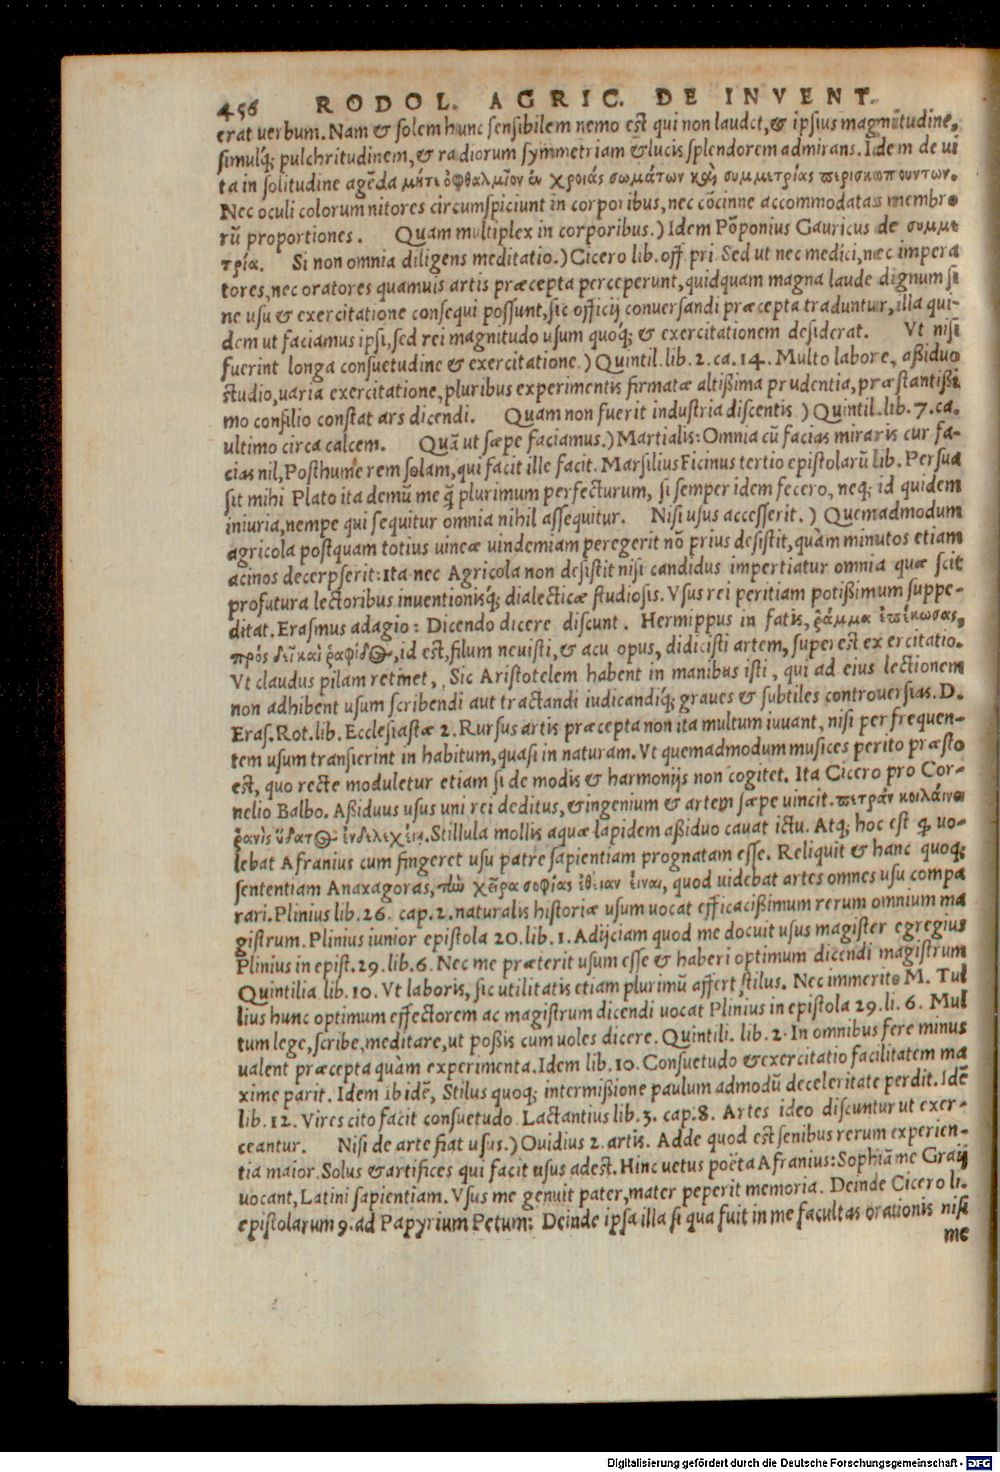 456 RODOL. AGRIC. DE INVENT.
erat uerbum. Nam & solem hunc sensibilem nemo est qui non laudet, & ipsius magnitudinē,
simulq; pulchritudinem, & radiorum symmetriam & lucis splendorem admirans. Idem de ui
ta in solitudine agēda μήτε ὀφθαλμῖον ἐν χροιάς σωμάτων καὶ συμμετρίας περισκωπουντων.
Nec oculi colorum nitores circumspiciunt in corporibus, nec cōcinne accommodatas membro
rū proportiones. Quam multiplex in corporibus.) Idem Pōponius Gauricus de συμμε
τρία. Si non omnia diligens meditatio.) Cicero lib. off. pri. Sed ut nec medici, nec impera
tores, nec oratores quamuis artis præcepta perceperunt, quidquam magna laude dignum si
ne usu & exercitatione consequi possunt, sic officij conuersandi præcepta traduntur, illa qui-
dem ut faciamus ipsi, sed rei magnitudo usum quoq; & exercitationem desiderat. Vt nisi
fuerint longa consuetudine & exercitatione.) Quintil. lib. 2. ca. 14. Multo labore, aßiduo
studio, uaria exercitatione, pluribus experimentis firmatæ altißima prudentia, præstantißi
mo consilio constat ars dicendi. Quam non fuerit industria discentis.) Quintil. lib. 7. ca.
ultimo circa calcem. Quā ut sæpe faciamus.) Martialis: Omnia cū facias miraris cur fa-
cias nil, Posthume rem solam, qui facit ille facit. Marsilius Ficinus tertio epistolarū lib. Persua
sit mihi Plato ita demū me q̄ plurimum perfecturum, si semper idem fecero, neq; id quidem
iniuria, nempe qui sequitur omnia nihil assequitur. Nisi usus accesserit.) Quemadmodum
agricola postquam totius uineæ uindemiam peregerit nō prius desistit, quàm minutos etiam
acinos decerpserit: Ita nec Agricola non desistit nisi candidus impertiatur omnia quæ scit
profutura lectoribus inuentionisq; dialecticæ studiosis. Vsus rei peritiam potißimum suppe-
ditat. Erasmus adagio: Dicendo dicere discunt. Hermippus in fatis, ῥάμμα ἐπέκωσας,
πρός δεῖ καὶ ῥαφίδος, id est, filum neuisti, & acu opus, didicisti artem, superest exercitatio.
Vt claudus pilam retinet, Sic Aristotelem habent in manibus isti, qui ad eius lectionem
non adhibent usum scribendi aut tractandi iudicandiq́; graues & subtiles controuersias. D.
Eras. Rot. lib. Ecclesiastæ 2. Rursus artis præcepta non ita multum iuuant, nisi per frequen-
tem usum transierint in habitum, quasi in naturam. Vt quemadmodum musices perito præsto
est, quo recte moduletur etiam si de modis & harmonijs non cogitet. Ita Cicero pro Cor-
nelio Balbo. Aßiduus usus uni rei deditus, & ingenium & artem sæpe uincit. πετράν κοιλαίνει
ῥανὶς ὕδατος ἐνδελεχέιη. Stillula mollis aquæ lapidem aßiduo cauat ictu. Atq; hoc est q̣ uo-
lebat Afranius cum fingeret usu patre sapientiam prognatam esse. Reliquit & hanc quoq;
sententiam Anaxagoras, τὼ χεῖρα σοφίας ἀιτίαν εἶναι, quod uidebat artes omnes usu compa
rari. Plinius lib. 26. cap. 2. naturalis historiæ usum uocat efficacißimum rerum omnium ma
gistrum. Plinius iunior epistola 20. lib. 1. Adijciam quod me docuit usus magister egregius
Plinius in epist. 29. lib. 6. Nec me præterit usum esse & haberi optimum dicendi magistrum
Quintilia lib. 10. Vt laboris, sic utilitatis etiam plurimū affert stilus. Nec immerito M. Tul
lius hunc optimum effectorem ac magistrum dicendi uocat Plinius in epistola 29. li. 6. Mul
tum lege, scribe, meditare, ut poßis cum uoles dicere. Quintili. lib. 2. In omnibus fere minus
ualent præcepta quàm experimenta. Idem lib. 10. Consuetudo & exercitatio facilitatem ma
xime parit. Idem ibidē, Stilus quoq; intermißione paulum admodū de celeritate perdit. Idē
lib. 12. Vires cito facit consuetudo. Lactantius lib. 3. cap. 8. Artes ideo discuntur ut exer-
ceantur. Nisi de arte fiat usus.) Ouidius 2. artis. Adde quod est senibus rerum experien-
tia maior. Solus & artifices qui facit usus adest. Hinc uetus poëta Afranius: Sophiā me Graij
uocant, Latini sapientiam. Vsus me genuit pater, mater peperit memoria. Deinde Cicero li.
epistolarum 9. ad Papyrium Petum: Deinde ipsa illa si qua fuit in me facultas orationis nisi
me
Digitalisierung gefördert durch die Deutsche Forschungsgemeinschaft - DFG